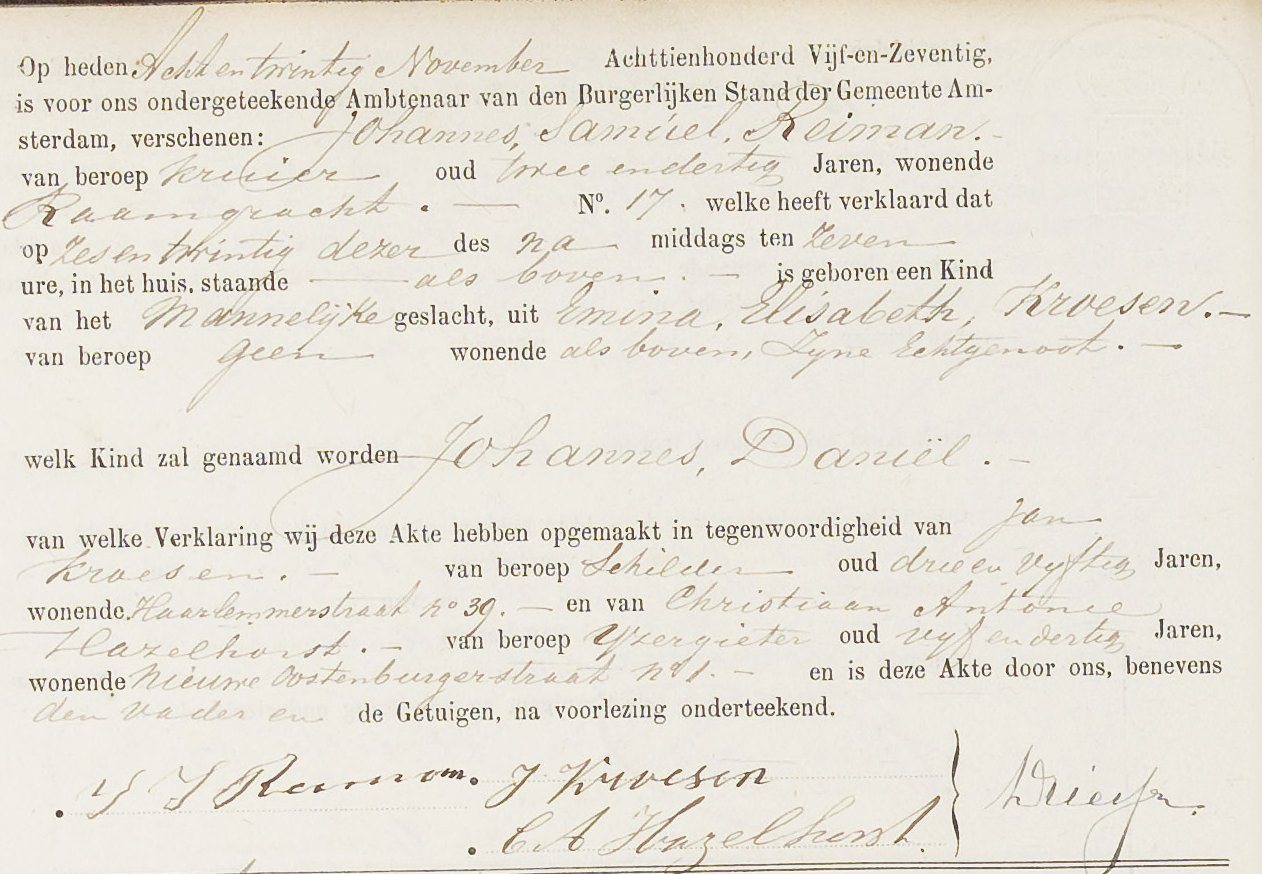 Op heden Acht en twintig November Achttienhonderd Vijf-en-Zeventig,
is voor ons ondergeteekende Ambtenaar van den Burgerlijken Stand der Gemeente Am-
sterdam, verschenen: Johannes, Samuel, Reiman.
van beroep kruier oud twee en dertig Jaren, wonende
Raamgracht. — No. 17. welke heeft verklaard dat
op zes en twintig dezer des na middags ten zeven
ure, in het huis, staande — als boven. — is geboren een Kind
van het Mannelijke geslacht, uit Emina, Elisabeth, Kroesen. —
van beroep geen wonende als boven, Zyne Echtgenoot. —
welk Kind zal genaamd worden Johannes, Daniël. —
van welke Verklaring wij deze Akte hebben opgemaakt in tegenwoordigheid van Jan
Kroesen. — van beroep Schilder oud drie en vyftig Jaren,
wonende Haarlemmerstraat no 39. — en van Christiaan Antonie
Hazelhorst. — van beroep Yzergieter oud vyf en dertig Jaren,
wonende Nieuwe Oostenburgerstraat no 1. — en is deze Akte door ons, benevens
den vader en de Getuigen, na voorlezing onderteekend.
J S Reiman. J Kroesen
C A Hazelhorst.